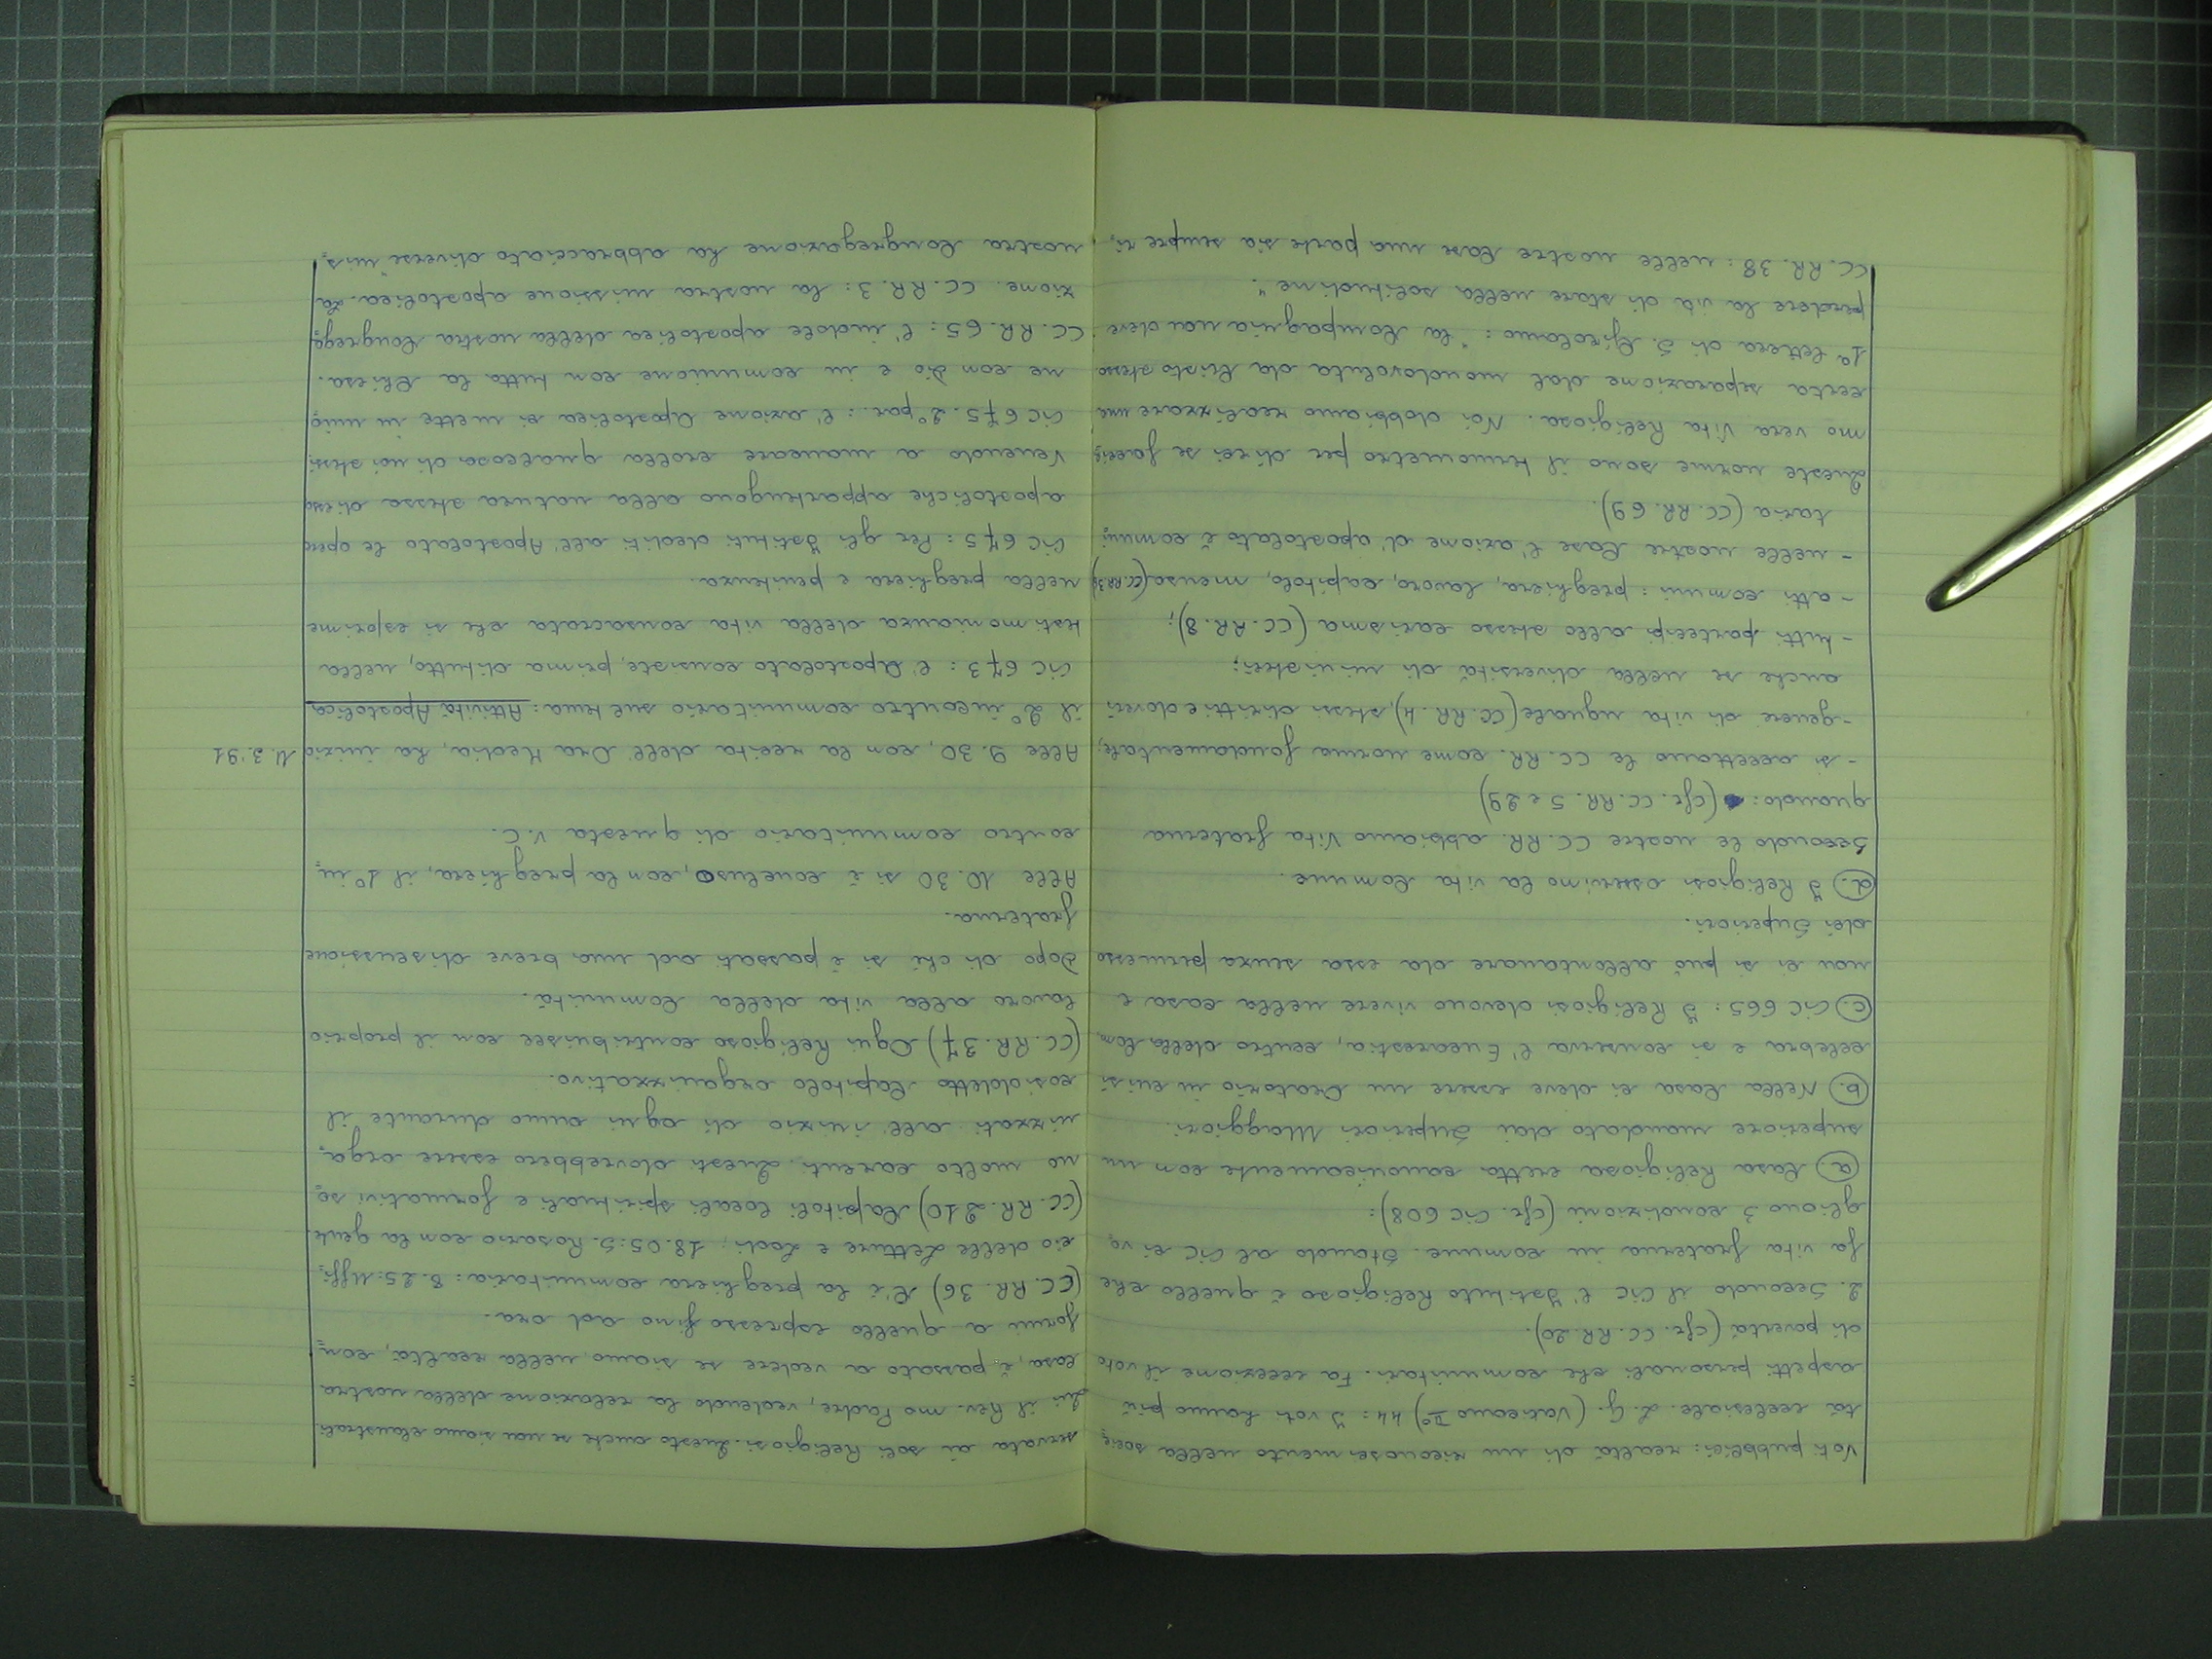 Voti pubblici: realtà di un riconoscimento nella socie
tà ecclesiale. L. G. (Vaticano II°) 44: I voti hanno più
aspetti personali che comunitari. Fa eccezione il voto
di povertà (cfr. CC. RR. 20).
2. Secondo il CIC l'Istituto Religioso è quello che
fa vita fraterna in comune. Stando al CIC ci vo
gliono 3 condizioni (cfr. CIC 608):
a. Casa Religiosa eretta canonicamente con un
superiore mandato dai Superiori Maggiori.
b. Nella Casa ci deve essere un Oratorio in cui si
celebra e si conserva l'Eucarestia, centro della Com.
c. CIC 665: I Religiosi devono vivere nella casa e
non ci si può allontanare da essa senza permesso
dei Superiori.
d. I Religiosi osservino la vita Comune.
Secondo le nostre CC. RR. abbiamo Vita fraterna
quando: (cfr. CC. RR. 5 e 29)
- si accettano le CC. RR. come norma fondamentale;
- genere di vita uguale (CC. RR. 4), stessi diritti e doveri
anche se nella diversità di ministeri;
- tutti partecipi allo stesso carisma (CC. RR. 8);
- atti comuni: preghiera, lavoro, capitolo, mensa (CC. RR 3
- nelle nostre Case l'azione d'apostolato è comuni
taria (CC. RR. 69).
Queste norme sono il termometro per dirci se faccia
mo vera Vita Religiosa. Noi dobbiamo realizzare una
certa separazione dal mondo voluta da Cristo stesso
1° lettera di S. Girolamo: "la Compagnia non deve
perdere la via di stare nella solitudine".
CC. RR. 38: nelle nostre Case una parte sia sempre ri,
servata ai soli Religiosi. Questo anche se non siamo claustrali.
Qui il Rev. mo Padre, vedendo la relazione della nostra
casa, è passato a vedere se siamo, nella realtà, con,
formi a quello espresso fino ad ora.
(CC. RR. 36) C'è la preghiera comunitaria: 8.25: Uffi,
cio delle Letture e Lodi; 18.05: S. Rosario con la gente
(CC. RR. 210) Capitoli locali spirituali e formativi so,
no molto carenti. Questi dovrebbero essere orga,
nizzati all'inizio di ogni anno durante il
cosiddetto Capitolo organizzativo.
(CC. RR. 37) Ogni Religioso contribuisce con il proprio
lavoro alla vita della Comunità.
Dopo di chè si è passati ad una breve discussione
fraterna.
Alle 10.30 si è concluso, con la preghiera, il 1° in,
contro comunitario di questa V. C.
11.3.'91
Alle 9.30, con la recita dell'Ora Media, ha inizio
il 2° incontro comunitario sul tema: Attività Apostolica
CIC 673: l'Apostolato consiste, prima di tutto, nella
testimonianza della vita consacrata che si esprime
nella preghiera e penitenza.
CIC 675: Per gli Istituti dediti all'Apostolato le opere
apostoliche appartengono alla natura stessa di essi
Venendo a mancare crolla qualcosa di noi stessi.
CIC 675. 2° par.: l'azione Apostolica si mette in unio
ne con Dio e in comunione con tutta la Chiesa.
CC. RR. 65: l'indole apostolica della nostra Congrega,
zione. CC. RR. 3: la nostra missione apostolica. La
nostra Congregazione ha abbracciato diverse "mis,